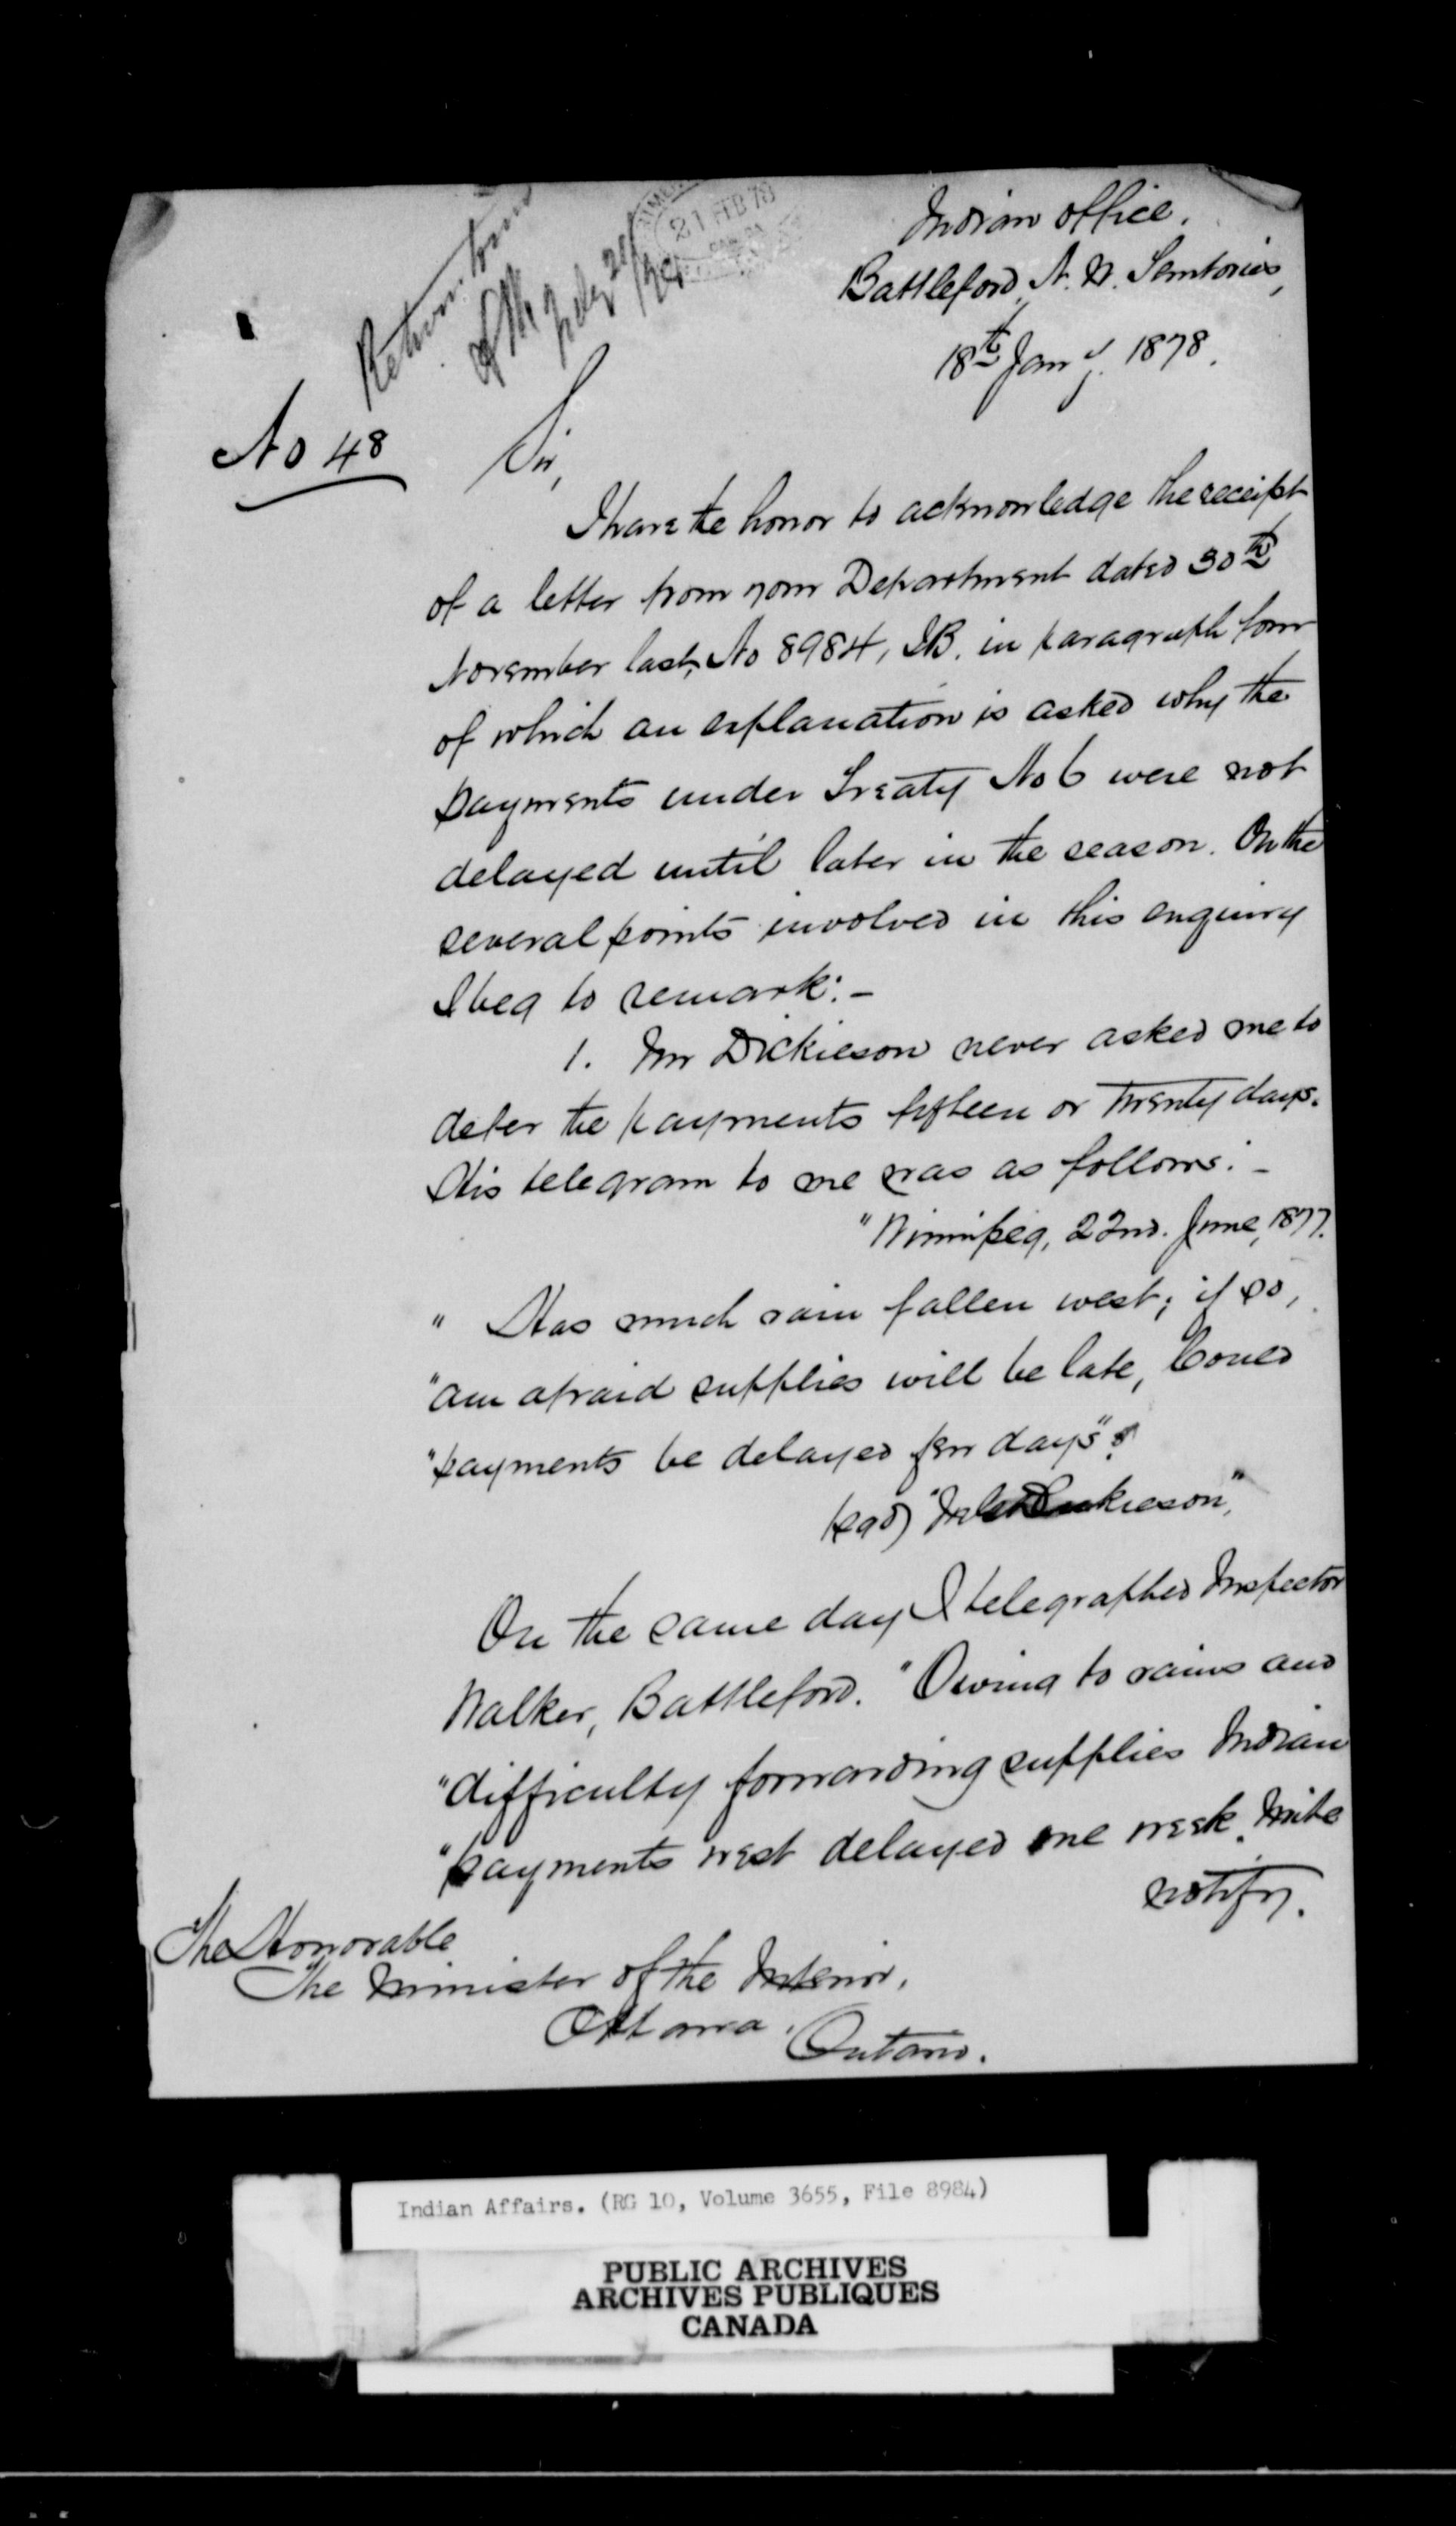 21 FEB 78
Indian Office,
Battleford, N. W. Territories,
18th Jany. 1878.
No 48
Sir,
I have the honor to acknowledge the receipt
of a letter from your Department dated 30th
November last, No 8984, I.B. in paragraph four
of which an explanation is asked why the
payments under Treaty No 6 were not
delayed until later in the season. On the
several points involved in this enquiry
I beg to remark:-
1. Mr Dickieson never asked me to
defer the payments fifteen or twenty days.
His telegram to me was as follows:-
"Winnipeg, 22nd. June, 1877.
" Has much rain fallen west; if so,
"am afraid supplies will be late, Could
"payments be delayed few days"?
(sgd) "M. G. Dickieson",
On the same day I telegraphed Inspector
Walker, Battleford. "Owing to rains and
"difficulty forwarding supplies Indian
"payments west delayed one week. Write
notify.
The Honorable
The Minister of the Interior,
Ottawa.
Ontario.
Indian Affairs. (RG 10, Volume 3655, File 8984)
PUBLIC ARCHIVES
ARCHIVES PUBLIQUES
CANADA